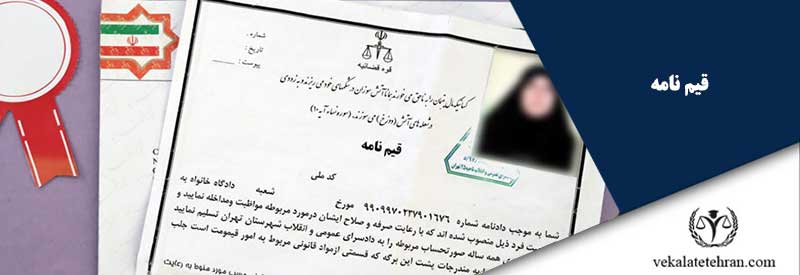 شماره.
تاریخ :
پیوست :
قوه قضائیه
کسانیکه مال یتیمان را به ناحق می خورند جانا آتش سوزان در شکمهای خود می ریزند و به زودی
در شعله های آتش (دوزخ) می سوزند. (سوره نساء آیه ۱۰)
قیم نامه
کد ملی
شما به موجب دادنامه شماره ۹۹۰۹۹۷۰۲۳۷۹۰۱۶۷۶ مورخ شعبه دادگاه خانواده به
فرد ذیل منصوب شده اند که با رعایت صرفه و صلاح ایشان درمورد مربوطه مواظبت ومداخله نمایید و
همه ساله صورتحساب مربوطه را به دادسرای عمومی و انقلاب شهرستان تهران تسلیم نمایید
مندرجات پشت این برگه که قسمتی ازمواد قانونی مربوط به امور قیمومت است جلب
قیم نامه
vekalatetehran.com